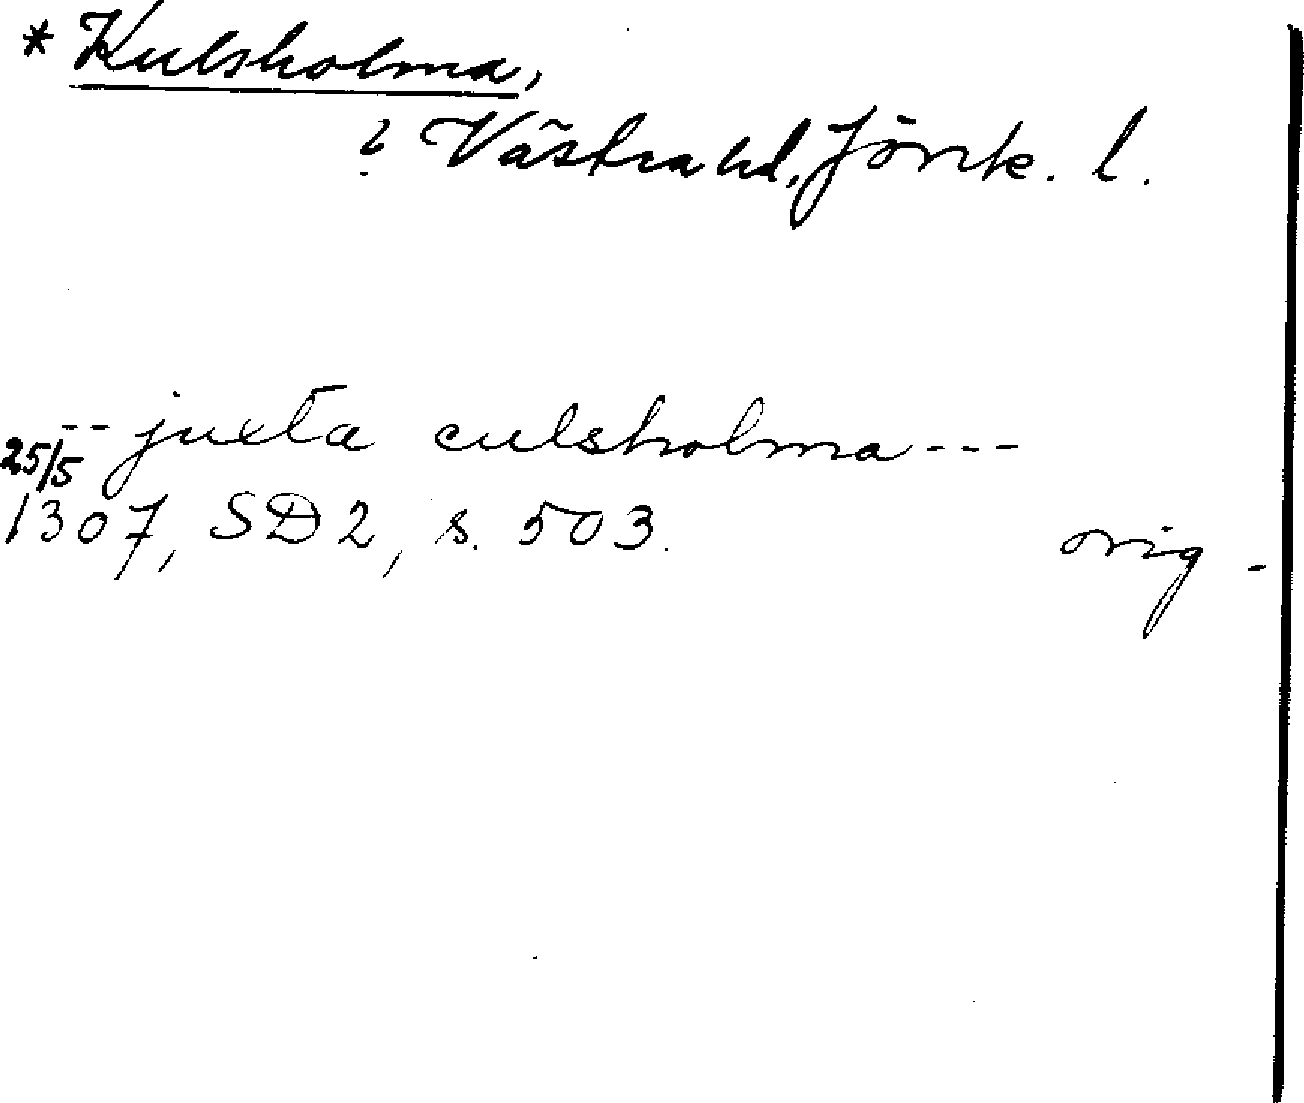 * Kulsholma,
? Västra hd, Jönk. l.
-- juxta culsholma ---
25/5
1307, SD 2, s. 503.
orig.